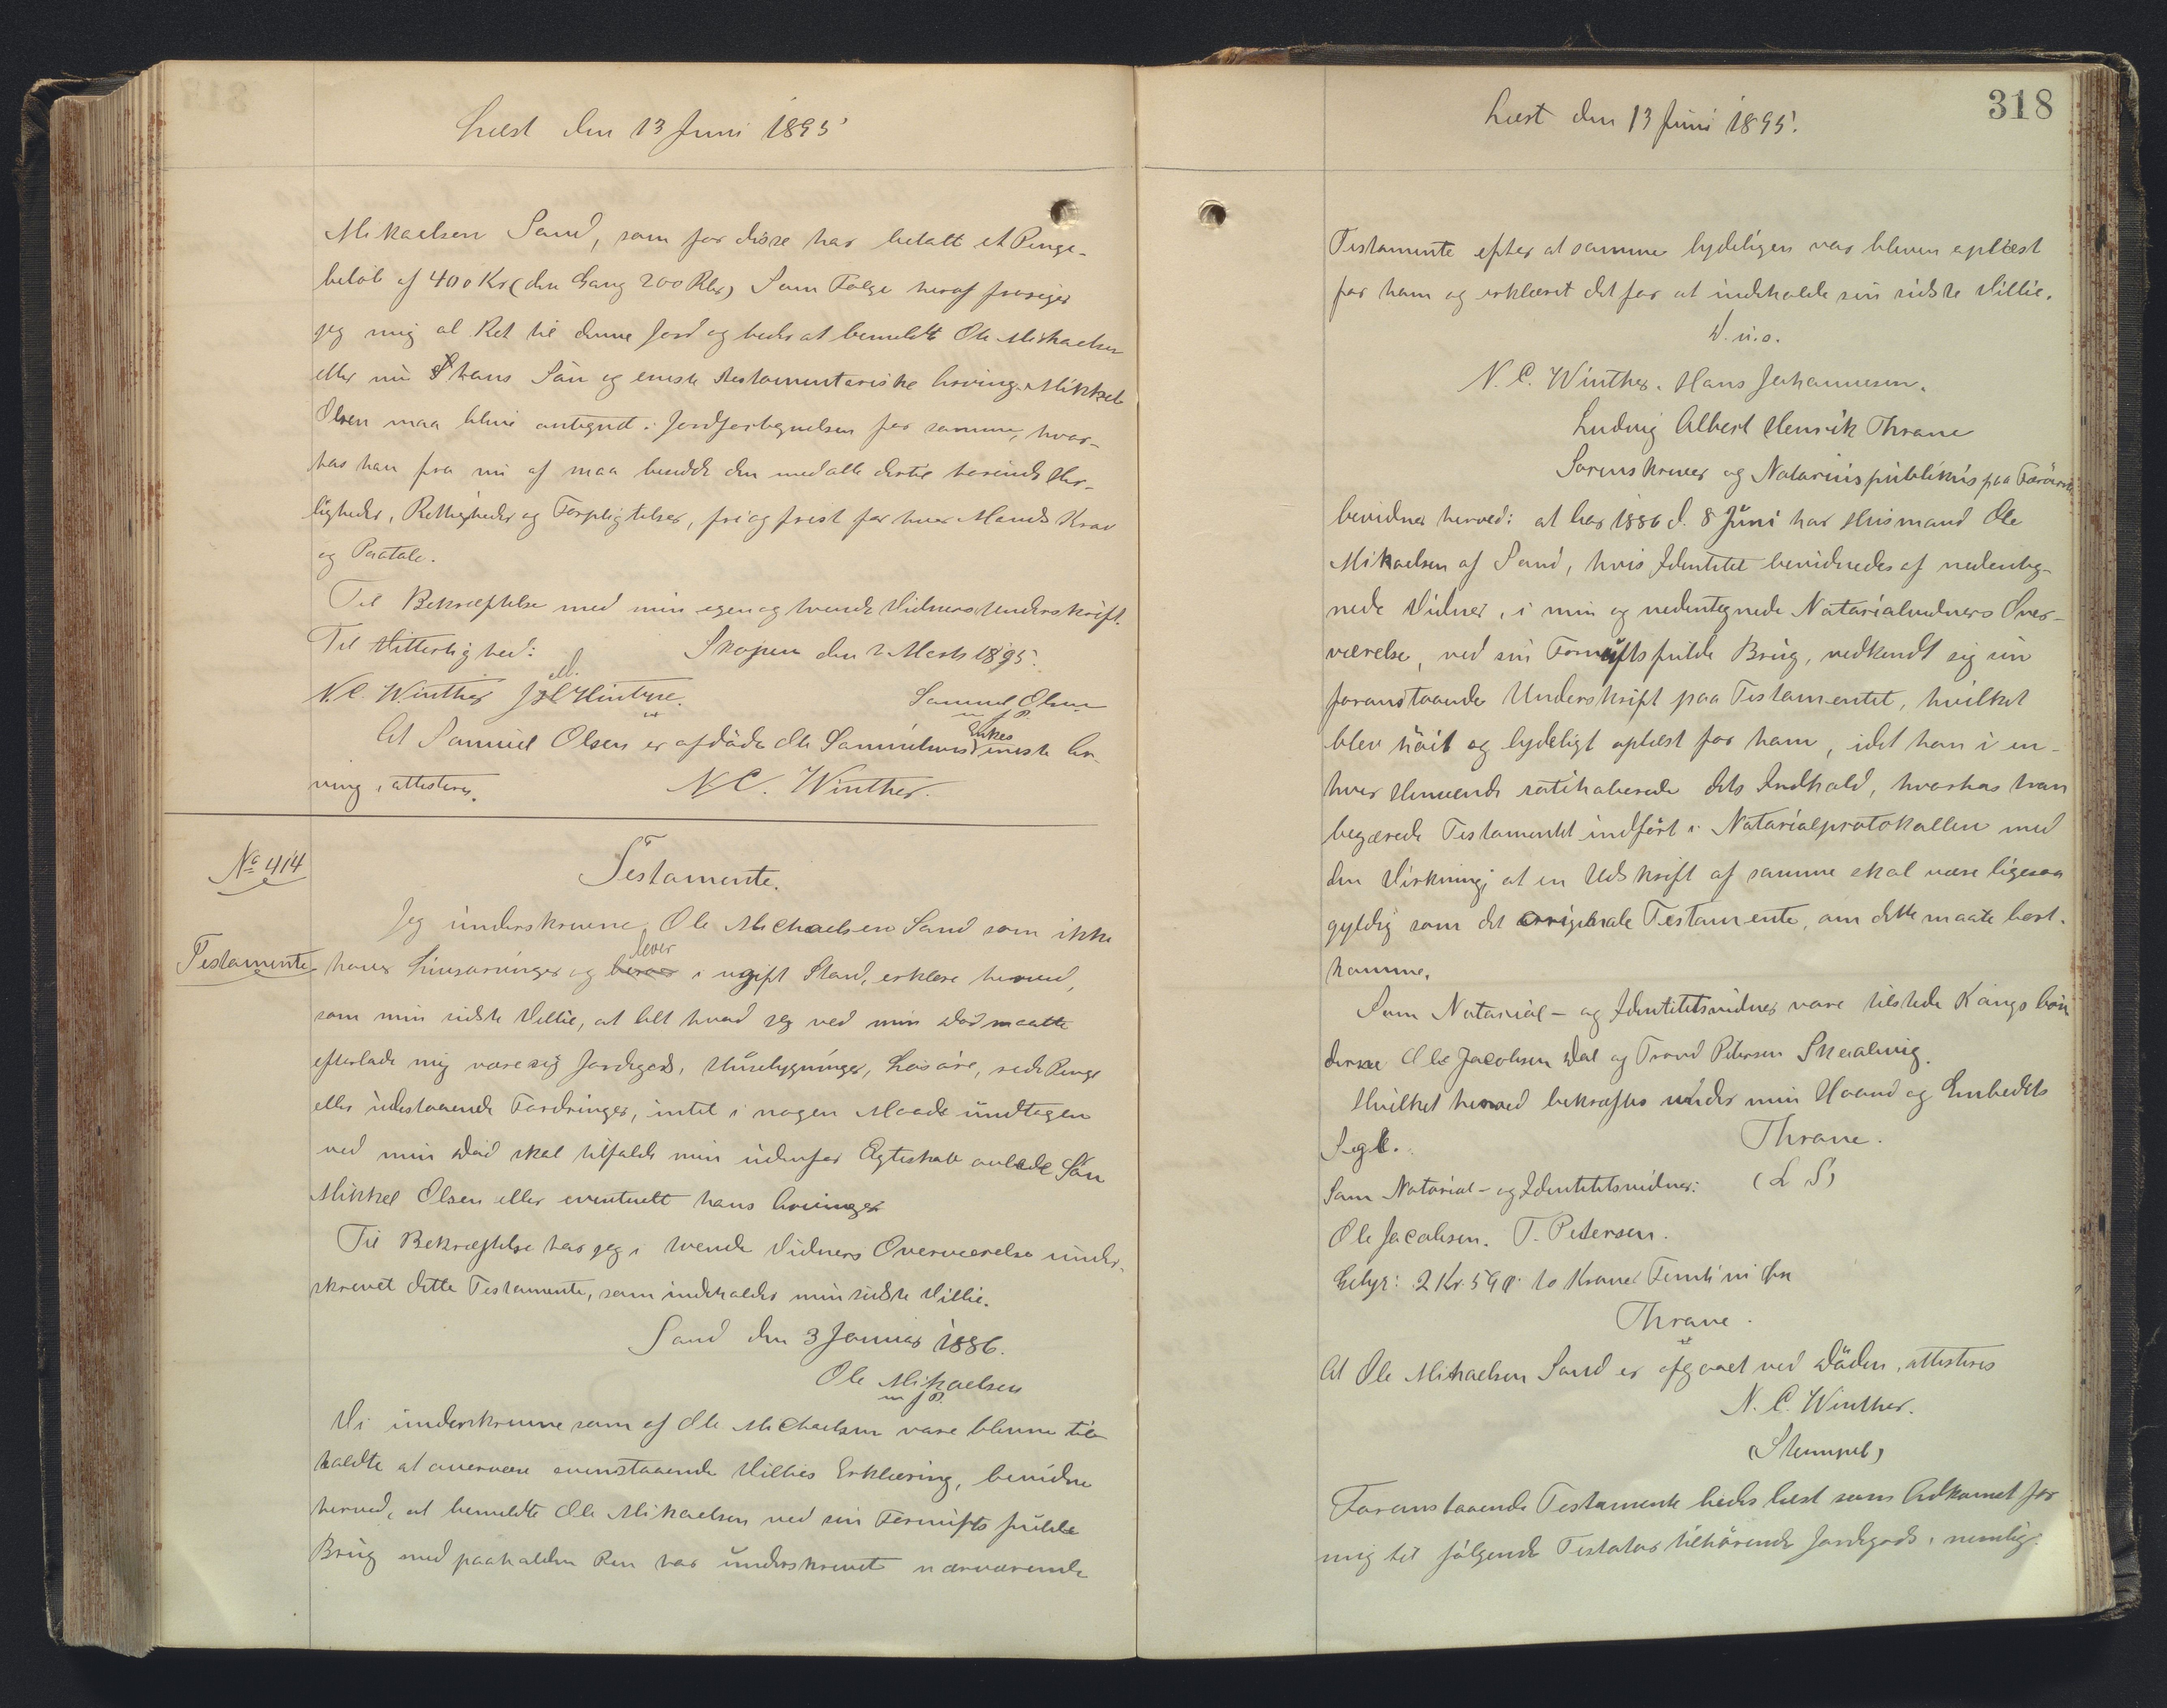 Læst den 13 Juni 1895
Mikaelsen Sand, som for disse har betalt et Penge-
beløb af 400 Kr (den Gang 200 Rdr) Som Følge heraf frasiger
jeg mig al Ret til denne Jord og beder at bemeldte Ole Mikaelsen
eller nu hans Sön og eneste testamentariske Arving Mikkel
Olsen maa blive antegnet i Jordfortegnelsen for samme, hvor-
hos han fra nu af maa besidde den med alle dertil hörende Her-
ligheder, Rettigheder og Forpligtelser, fri og frist for hver Mands Krav
og Paatale.
Til Bekræftelse med min egen og tvende Vidners Underskrift.
Til Vitterlighed: Skopun den 2 Marts 1895.
N.C. Winther Samuel Olsen
m f P.
At Samuel Olsen er afdöde Ole Samuelsens Enkes eneste Ar-
ving, attesteres. N.C. Winther.
No 414
Testamente.
Jeg underskrevne Ole Michaelsen Sand som ikke
Testamente haver Livsarvinger og lever i ugift Stand, erklære herved,
som min sidste Villie, at Alt hvad jeg ved min Död maatte
efterlade mig være sig Jordegods, Huusbygninger, Lösöre, rede Penge
eller udestaaende Fordringer, intet i nogen Maade undtagen
ved min Död skal tilfalde min udenfor Ægteskab avlede Sön
Mikkel Olsen eller eventuelt hans Arvinger
Til Bekræftelse har jeg i tvende Vidners Overværelse under-
skrevet dette Testamente, som indeholder min sidste Villie.
Sand den 3 Januar 1886.
Ole Mikaelsen
m f P.
Vi underskrevne som af Ole Michaelsen vare blevne til-
kaldte at overvære ovenstaaende Villies Erklæring, bevidne
herved, at bemeldte Ole Mikaelsen ved sin Fornufts fulde
Brug med paaholden Pen har underskrevet nærværende
318
Læst den 13 Juni 1895.
Testamente efter at samme lydeligen var bleven oplæst
for ham og erklæret det for at indeholde sin sidste Villie.
D.u.s.
N.C. Winther. Hans Johannesen.
Ludvig Albert Henrik Thrane
Sorenskriver og Notarius publikus paa Færöerne
bevidner herved: at Aar 1886 d. 8 Juni har Husmand Ole
Mikaelsen af Sand, hvis Identitet bevidnedes af nedenteg-
nede Vidner, i min og nedentegnede Notarialvidners Over-
værelse, ved sin Fornufts fulde Brug, vedkendt sig sin
foranstaaende Underskrift paa Testamentet, hvilket
blev höit og lydeligt oplæst for ham, idet han i en-
hver Henseende ratihaberede dets Indhold, hvorhos han
begærede Testamentet indfört i Notarialprotokollen med
den Virkning, at en Udskrift af samme skal være ligesaa
gyldig som det originale Testamente, om dette maate bort-
komme.
Som Notarial- og Identitetsvidner vare tilstede Kongsbön
derne Ole Jacobsen Dal og Trond Petersen Skaalavig.
Hvilket herved bekræftes under min Haand og Embedets
Segl. Thrane.
Som Notarial- og Identitetsvidner: (L S)
Ole Jacobsen. T. Petersen.
Gebyr: 2 Kr. 59 Ø. to Kroner Femti ni Öre
Thrane.
At Ole Mikaelsen Sand er afgaaet ved Döden, attesteres
N.C. Winther.
(Stempel)
Foranstaaende Testamente bedes læst som Adkomst for
mig til fölgende Testator tilhörende Jordegods, nemlig: